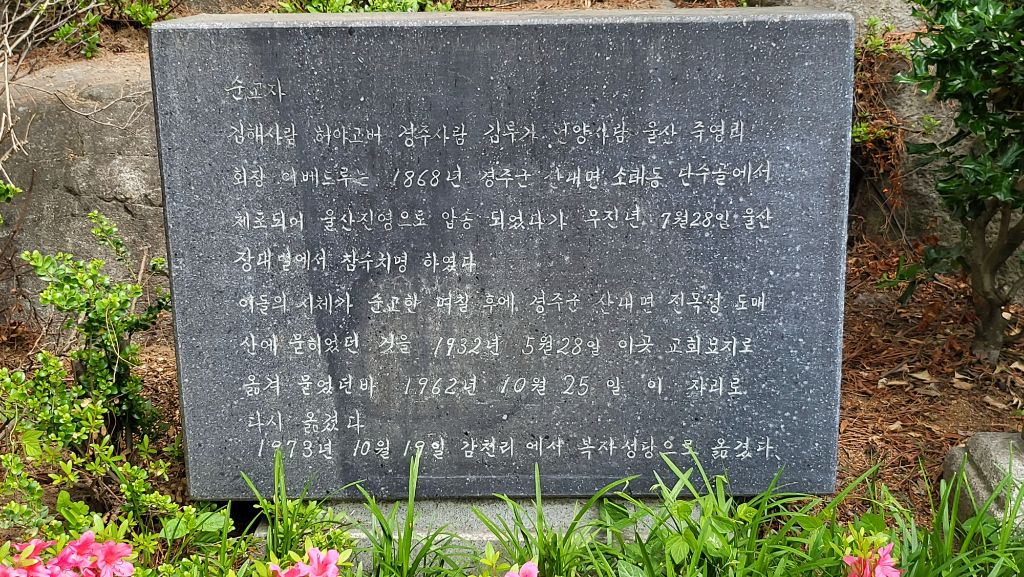 순교자
김해사람 허야고버 경주사람 김루가 언양사람 울산 죽영리
회장 이베드루는 1868년 경주군 산내면 소태동 단수골에서
체포되어 울산진영으로 압송 되었다가 무진년 7월28일 울산
장대벌에서 참수치명 하였다
이들의 시체가 순교한 며칠 후에 경주군 산내면 진목정 도매
산에 묻히었던 것을 1932년 5월28일 이곳 교회묘지로
옮겨 묻었던바 1962년 10월 25일 이 자리로
다시 옮겼다
1973년 10월 19일 감천리에서 복자성당으로 옮겼다